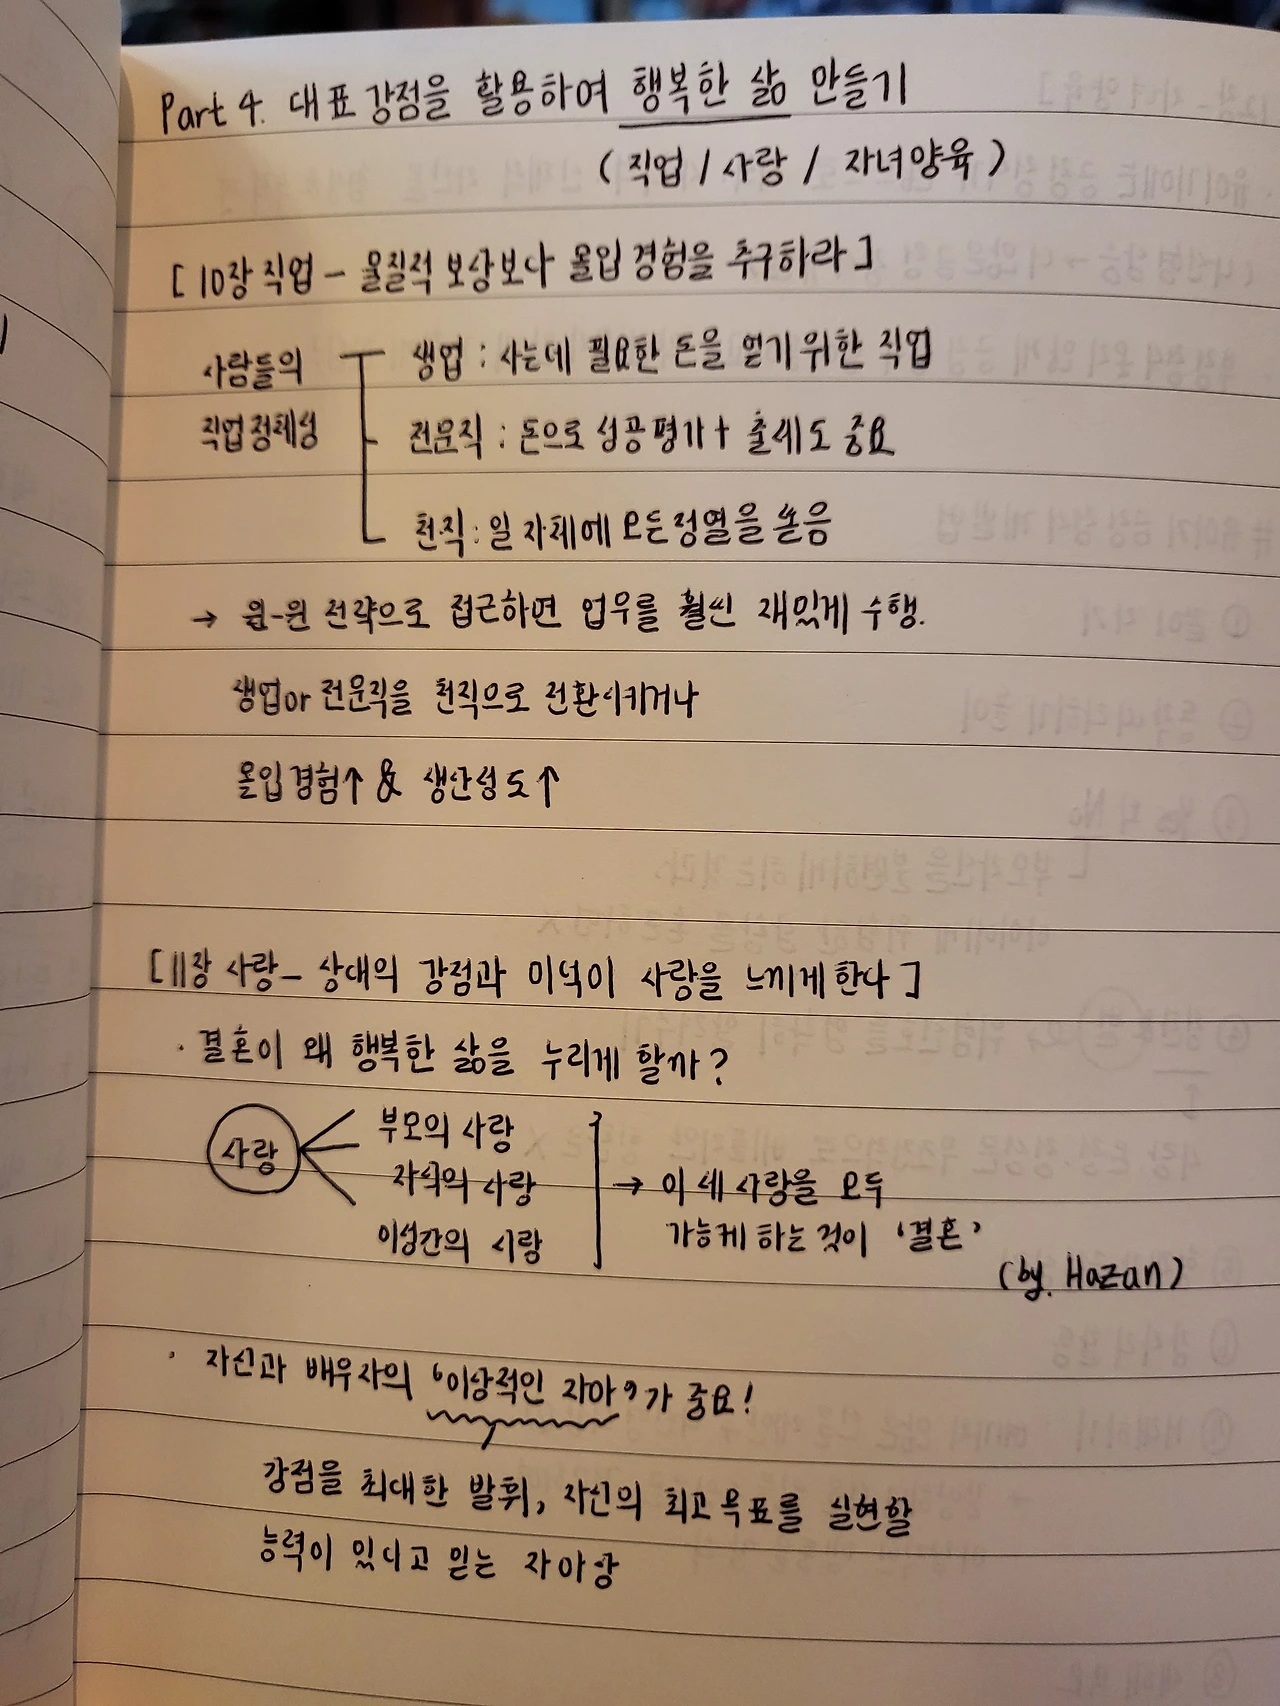 Part 4. 대표강점을 활용하여 행복한 삶 만들기
(직업 / 사랑 / 자녀양육)
[10장 직업 - 물질적 보상보다 몰입 경험을 추구하라]
사람들의 직업정체성
생업 : 사는데 필요한 돈을 얻기 위한 직업
전문직 : 돈으로 성공평가 + 출세도 중요
천직 : 일 자체에 모든 정열을 쏟음
→ 윈-윈 전략으로 접근하면 업무를 훨씬 재밌게 수행.
생업 or 전문직을 천직으로 전환시키거나
몰입경험↑ & 생산성도↑
[11장 사랑 - 상대의 강점과 미덕이 사랑을 느끼게 한다]
· 결혼이 왜 행복한 삶을 누리게 할까?
사랑
부모의 사랑
자식의 사랑
이성간의 사랑
→ 이 세 사랑을 모두
가능케 하는 것이 '결혼'
(by. Hazan)
· 자신과 배우자의 '이상적인 자아'가 중요!
강점을 최대한 발휘, 자신의 최고 목표를 실현할
능력이 있다고 믿는 자아상